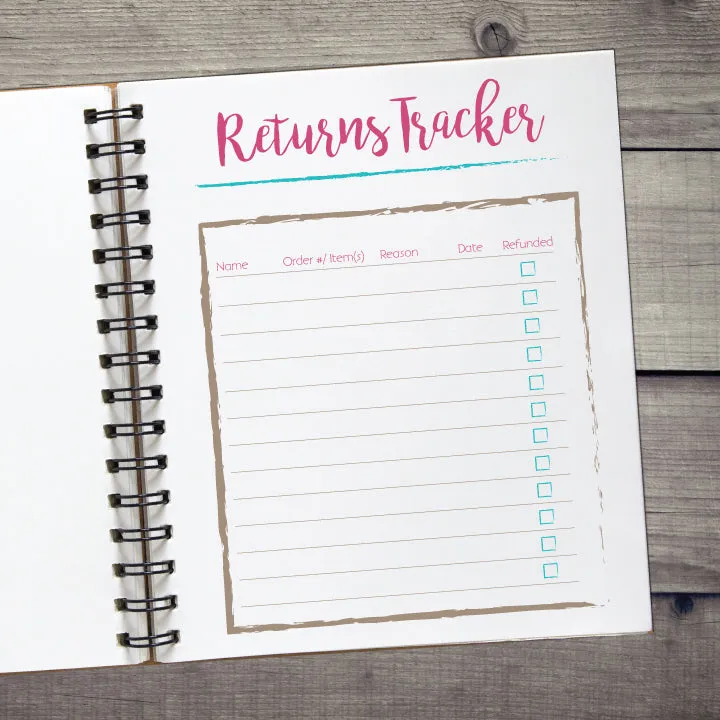 Returns Tracker
Name Order #/ Item(s) Reason Date Refunded